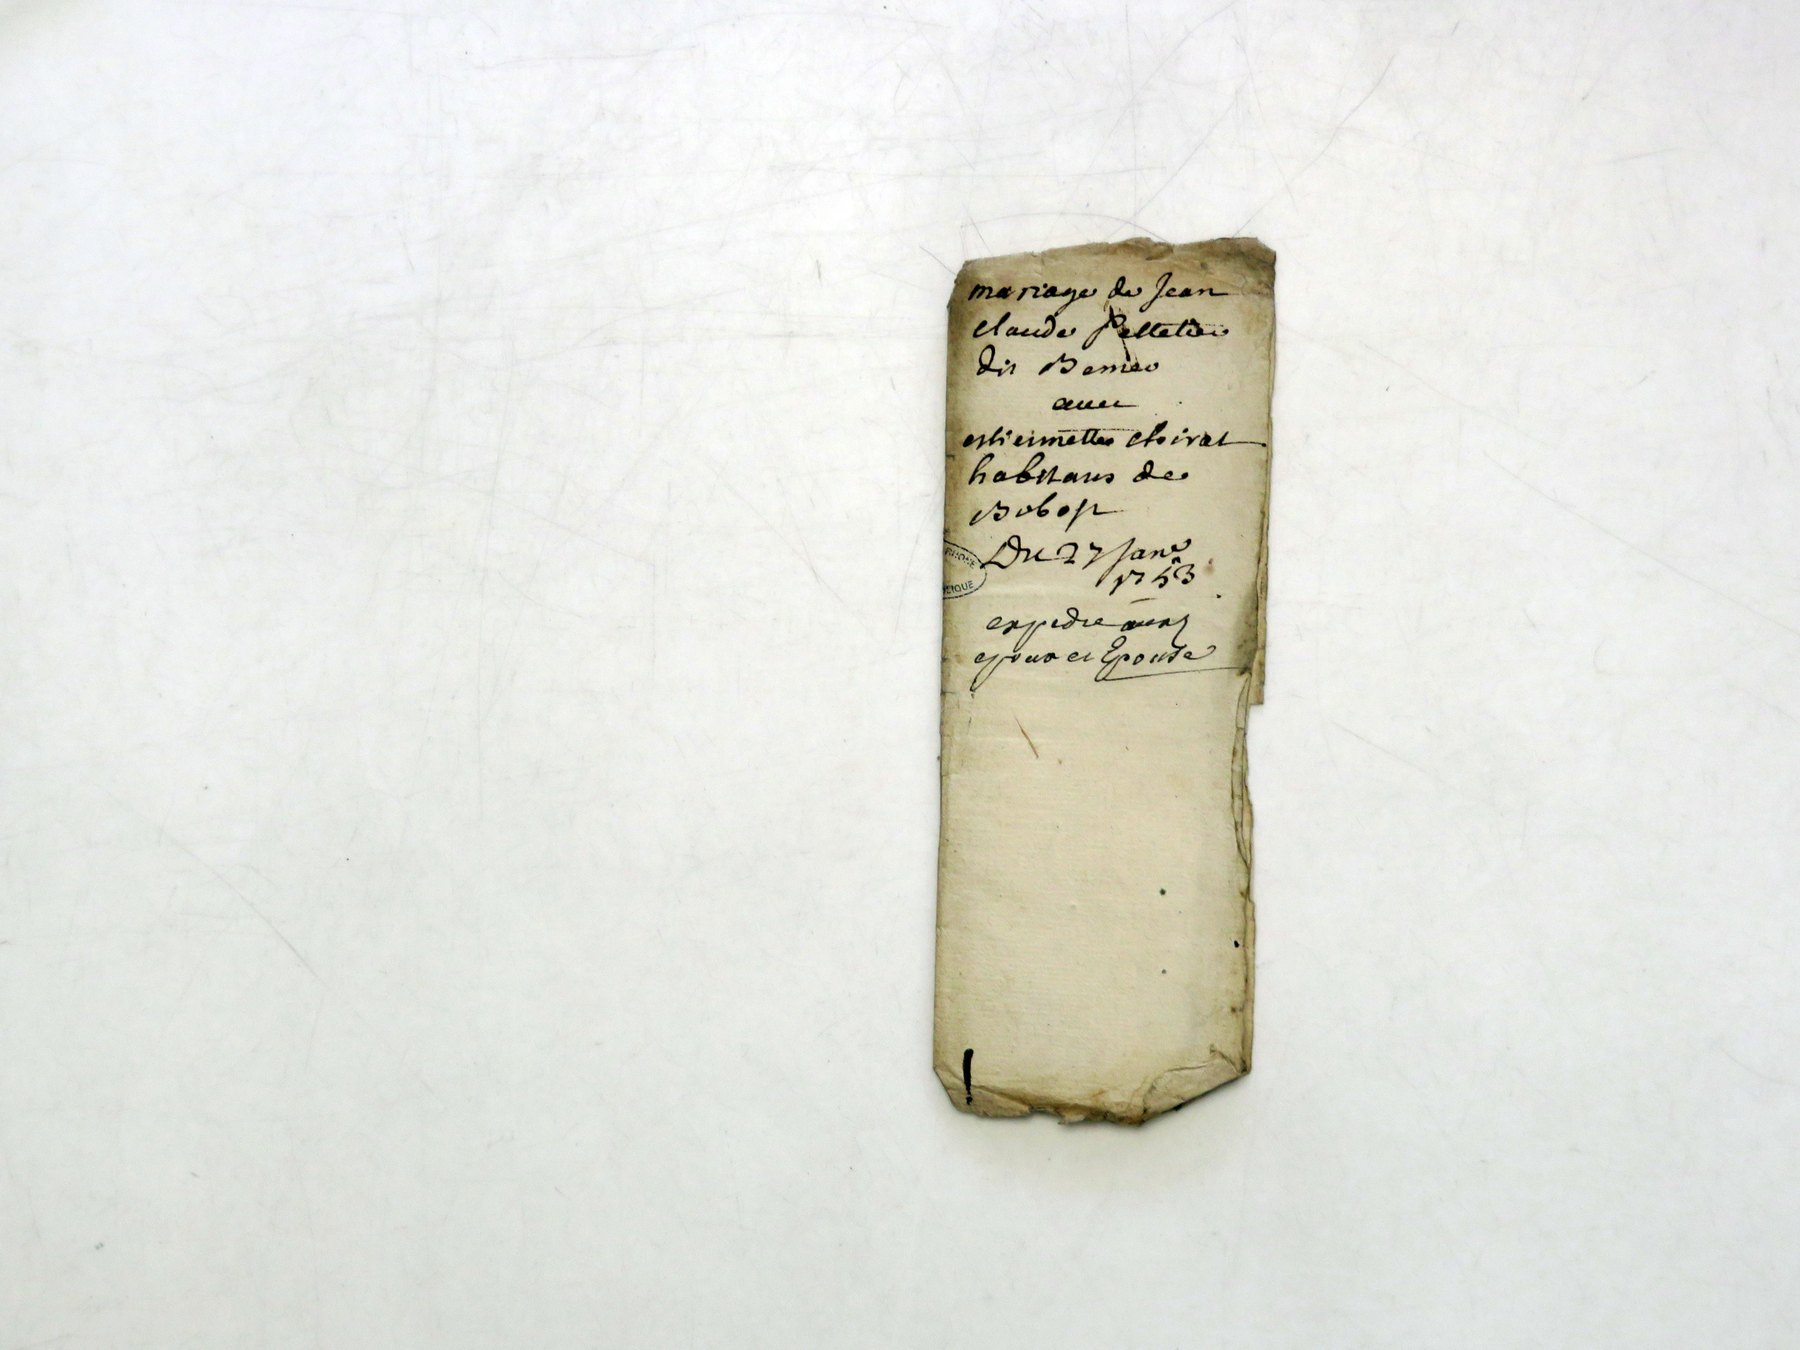 mariage de Jean
claude Pelletier
dit Bemer
avec
estiennette choirat
habitans de
Bobost
Du 27 Janr
1753
expedie aux
epoux et Epouse
RHONE